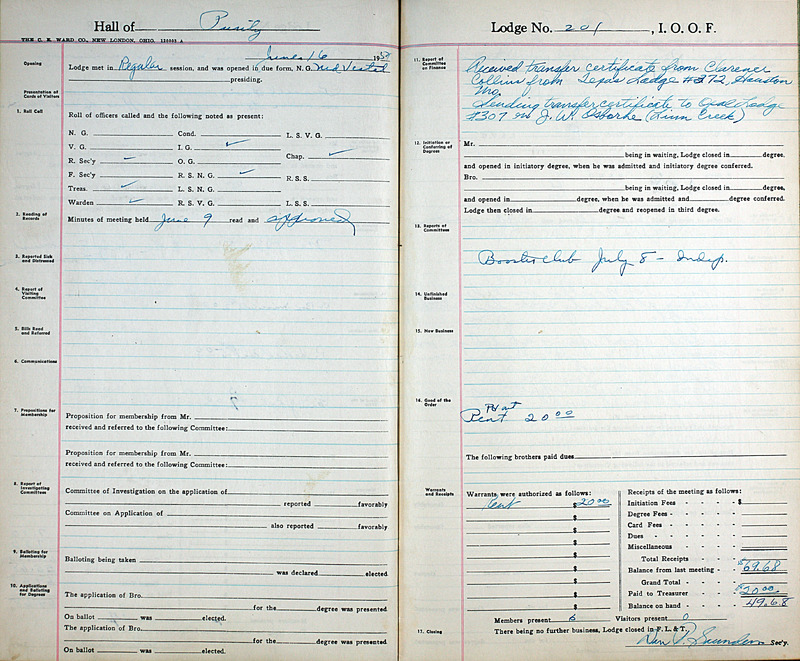 Hall of Purity
THE C. E. WARD CO., NEW LONDON, OHIO. 125003 A
June 16 19
Opening
Lodge met in Regular session, and was opened in due form, N. G.
presiding.
Presentation of Cards of Visitors
1. Roll Call
Roll of officers called and the following noted as present:
N. G. Cond. L. S. V. G.
V. G. I. G. ✓
R. Sec'y ✓ O. G. Chap. ✓
F. Sec'y R. S. N. G. ✓ R. S. S.
Treas. ✓ L. S. N. G.
Warden ✓ R. S. V. G. L. S. S.
2. Reading of Records
Minutes of meeting held June 9 read and approved
3. Reported Sick and Distressed
4. Report of Visiting Committee
5. Bills Read and Referred
6. Communications
7. Propositions for Membership
Proposition for membership from Mr.
received and referred to the following Committee:
Proposition for membership from Mr.
received and referred to the following Committee:
8. Report of Investigating Committees
Committee of Investigation on the application of
reported favorably
Committee on Application of
also reported favorably
9. Balloting for Membership
Balloting being taken
was declared elected.
10. Applications and Balloting for Degrees
The application of Bro.
for the degree was presented.
On ballot was elected.
The application of Bro.
for the degree was presented
On ballot was elected.
Lodge No. 201, I. O. O. F.
11. Report of Committee on Finance
Received transfer certificate from Clarence
Collins from Texas Lodge #272, Houston
Mo.
Sending transfer certificate to Lodge
#307 J. W. Osborne (Linn Creek)
12. Initiation or Conferring of Degrees
Mr.
being in waiting, Lodge closed in degree,
and opened in initiatory degree, when he was admitted and initiatory degree conferred.
Bro.
being in waiting, Lodge closed in degree,
and opened in degree, when he was admitted and degree conferred.
Lodge then closed in degree and reopened in third degree.
13. Reports of Committees
Booster Club July 8 - Indep.
14. Unfinished Business
15. New Business
16. Good of the Order
Rent 20 00
The following brothers paid dues
Warrants and Receipts
Warrants were authorized as follows:
Rent $20.00
$
$
$
$
$
$
$
$
Receipts of the meeting as follows:
Initiation Fees - - - - $
Degree Fees - - - -
Card Fees - - - -
Dues - - - -
Miscellaneous - - - -
Total Receipts
Balance from last meeting - $69.68
Grand Total -
Paid to Treasurer - - $20.00
Balance on hand - - - 49.68
Members present 6 Visitors present 0
17. Closing
There being no further business, Lodge closed in F. L. & T.
Saunders Sec'y.